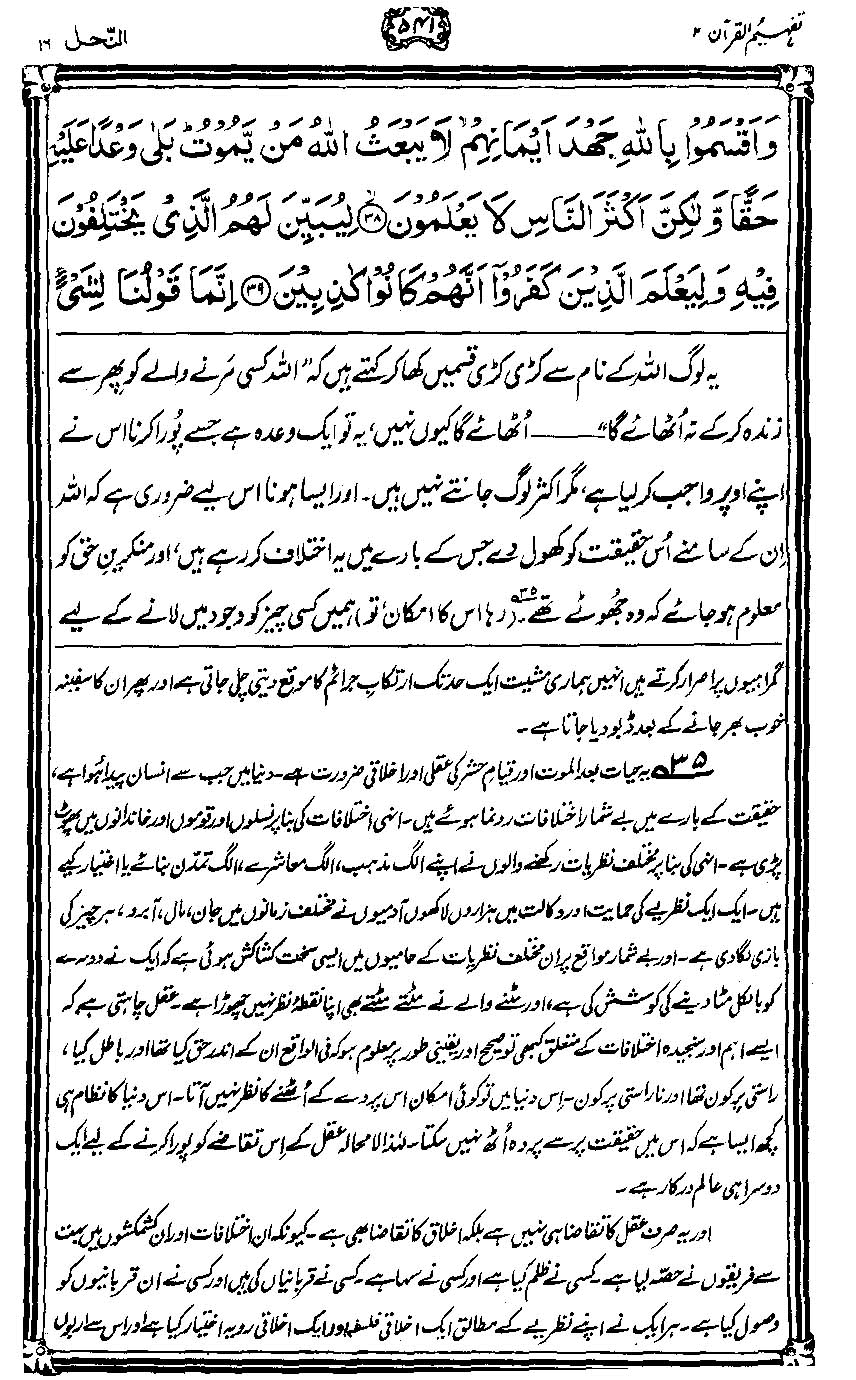 تفہیم القرآن ۲
۵۴۱
النّحل ۱۶
وَاَقْسَمُوْا بِاللّٰهِ جَهْدَ اَيْمَانِهِمْ ۙ لَا يَبْعَثُ اللّٰهُ مَنْ يَّمُوْتُ ؕ بَلٰى وَعْدًا عَلَيْهِ
حَقًّا وَّلٰكِنَّ اَكْثَرَ النَّاسِ لَا يَعْلَمُوْنَ ۙ﴿۳۸﴾ لِيُبَيِّنَ لَهُمُ الَّذِىْ يَخْتَلِفُوْنَ
فِيْهِ وَلِيَعْلَمَ الَّذِيْنَ كَفَرُوْۤا اَنَّهُمْ كَانُوْا كٰذِبِيْنَ ﴿۳۹﴾ اِنَّمَا قَوْلُنَا لِشَىْءٍ
یہ لوگ اللہ کے نام سے کڑی کڑی قسمیں کھا کر کہتے ہیں کہ ”اللہ کسی مَرنے والے کو پھر سے
زندہ کر کے نہ اُٹھائے گا“ــــــ اُٹھائے گا کیوں نہیں، یہ تو ایک وعدہ ہے جسے پُورا کرنا اس نے
اپنے اوپر واجب کر لیا ہے، مگر اکثر لوگ جانتے نہیں ہیں۔ اور ایسا ہونا اس لیے ضروری ہے کہ اللہ
اِن کے سامنے اُس حقیقت کو کھول دے جس کے بارے میں یہ اختلاف کر رہے ہیں، اور منکرینِ حق کو
معلوم ہو جائے کہ وہ جُھوٹے تھے۔۳۵ (رہا اس کا امکان تو) ہمیں کسی چیز کو وجود میں لانے کے لیے
گمراہیوں پر اصرار کرتے ہیں انہیں ہماری مشیت ایک حد تک ارتکابِ جرائم کا موقع دیتی چلی جاتی ہے اور پھر ان کا سفینہ
خوب بھر جانے کے بعد ڈبو دیا جاتا ہے۔
۳۵ یہ حیات بعد الموت اور قیامِ حشر کی عقلی اور اخلاقی ضرورت ہے۔ دنیا میں جب سے انسان پیدا ہُوا ہے،
حقیقت کے بارے میں بے شمار اختلافات رونما ہوئے ہیں۔ انہی اختلافات کی بنا پر نسلوں اور قوموں اور خاندانوں میں پھوٹ
پڑی ہے۔ انہی کی بنا پر مختلف نظریات رکھنے والوں نے اپنے الگ مذہب، الگ معاشرے، الگ تمدّن بنائے یا اختیار کیے
ہیں۔ ایک ایک نظریے کی حمایت اور وکالت میں ہزاروں لاکھوں آدمیوں نے مختلف زمانوں میں جان، مال، آبرو، ہر چیز کی
بازی لگا دی ہے۔ اور بے شمار مواقع پر ان مختلف نظریات کے حامیوں میں ایسی سخت کشاکش ہوئی ہے کہ ایک نے دوسرے
کو بالکل مٹا دینے کی کوشش کی ہے، اور مٹنے والے نے مٹتے مٹتے بھی اپنا نقطۂ نظر نہیں چھوڑا ہے۔ عقل چاہتی ہے کہ
ایسے اہم اور سنجیدہ اختلافات کے متعلق کبھی تو صحیح اور یقینی طور پر معلوم ہو کہ فی الواقع ان کے اندر حق کیا تھا اور باطل کیا،
راستی پر کون تھا اور ناراستی پر کون۔ اِس دنیا میں تو کوئی امکان اس پردے کے اُٹھنے کا نظر نہیں آتا۔ اس دنیا کا نظام ہی
کچھ ایسا ہے کہ اس میں حقیقت پر سے پردہ اُٹھ نہیں سکتا۔ لہٰذا لا محالہ عقل کے اِس تقاضے کو پورا کرنے کے لیے ایک
دوسرا ہی عالم درکار ہے۔
اور یہ صرف عقل کا تقاضا ہی نہیں ہے بلکہ اخلاق کا تقاضا بھی ہے۔ کیونکہ ان اختلافات اور ان کشمکشوں میں بہت
سے فریقوں نے حصّہ لیا ہے۔ کسی نے ظلم کیا ہے اور کسی نے سہا ہے۔ کسی نے قربانیاں کی ہیں اور کسی نے ان قربانیوں کو
وصول کیا ہے۔ ہر ایک نے اپنے نظریے کے مطابق ایک اخلاقی فلسفہ اور ایک اخلاقی رویہ اختیار کیا ہے اور اس سے اربوں